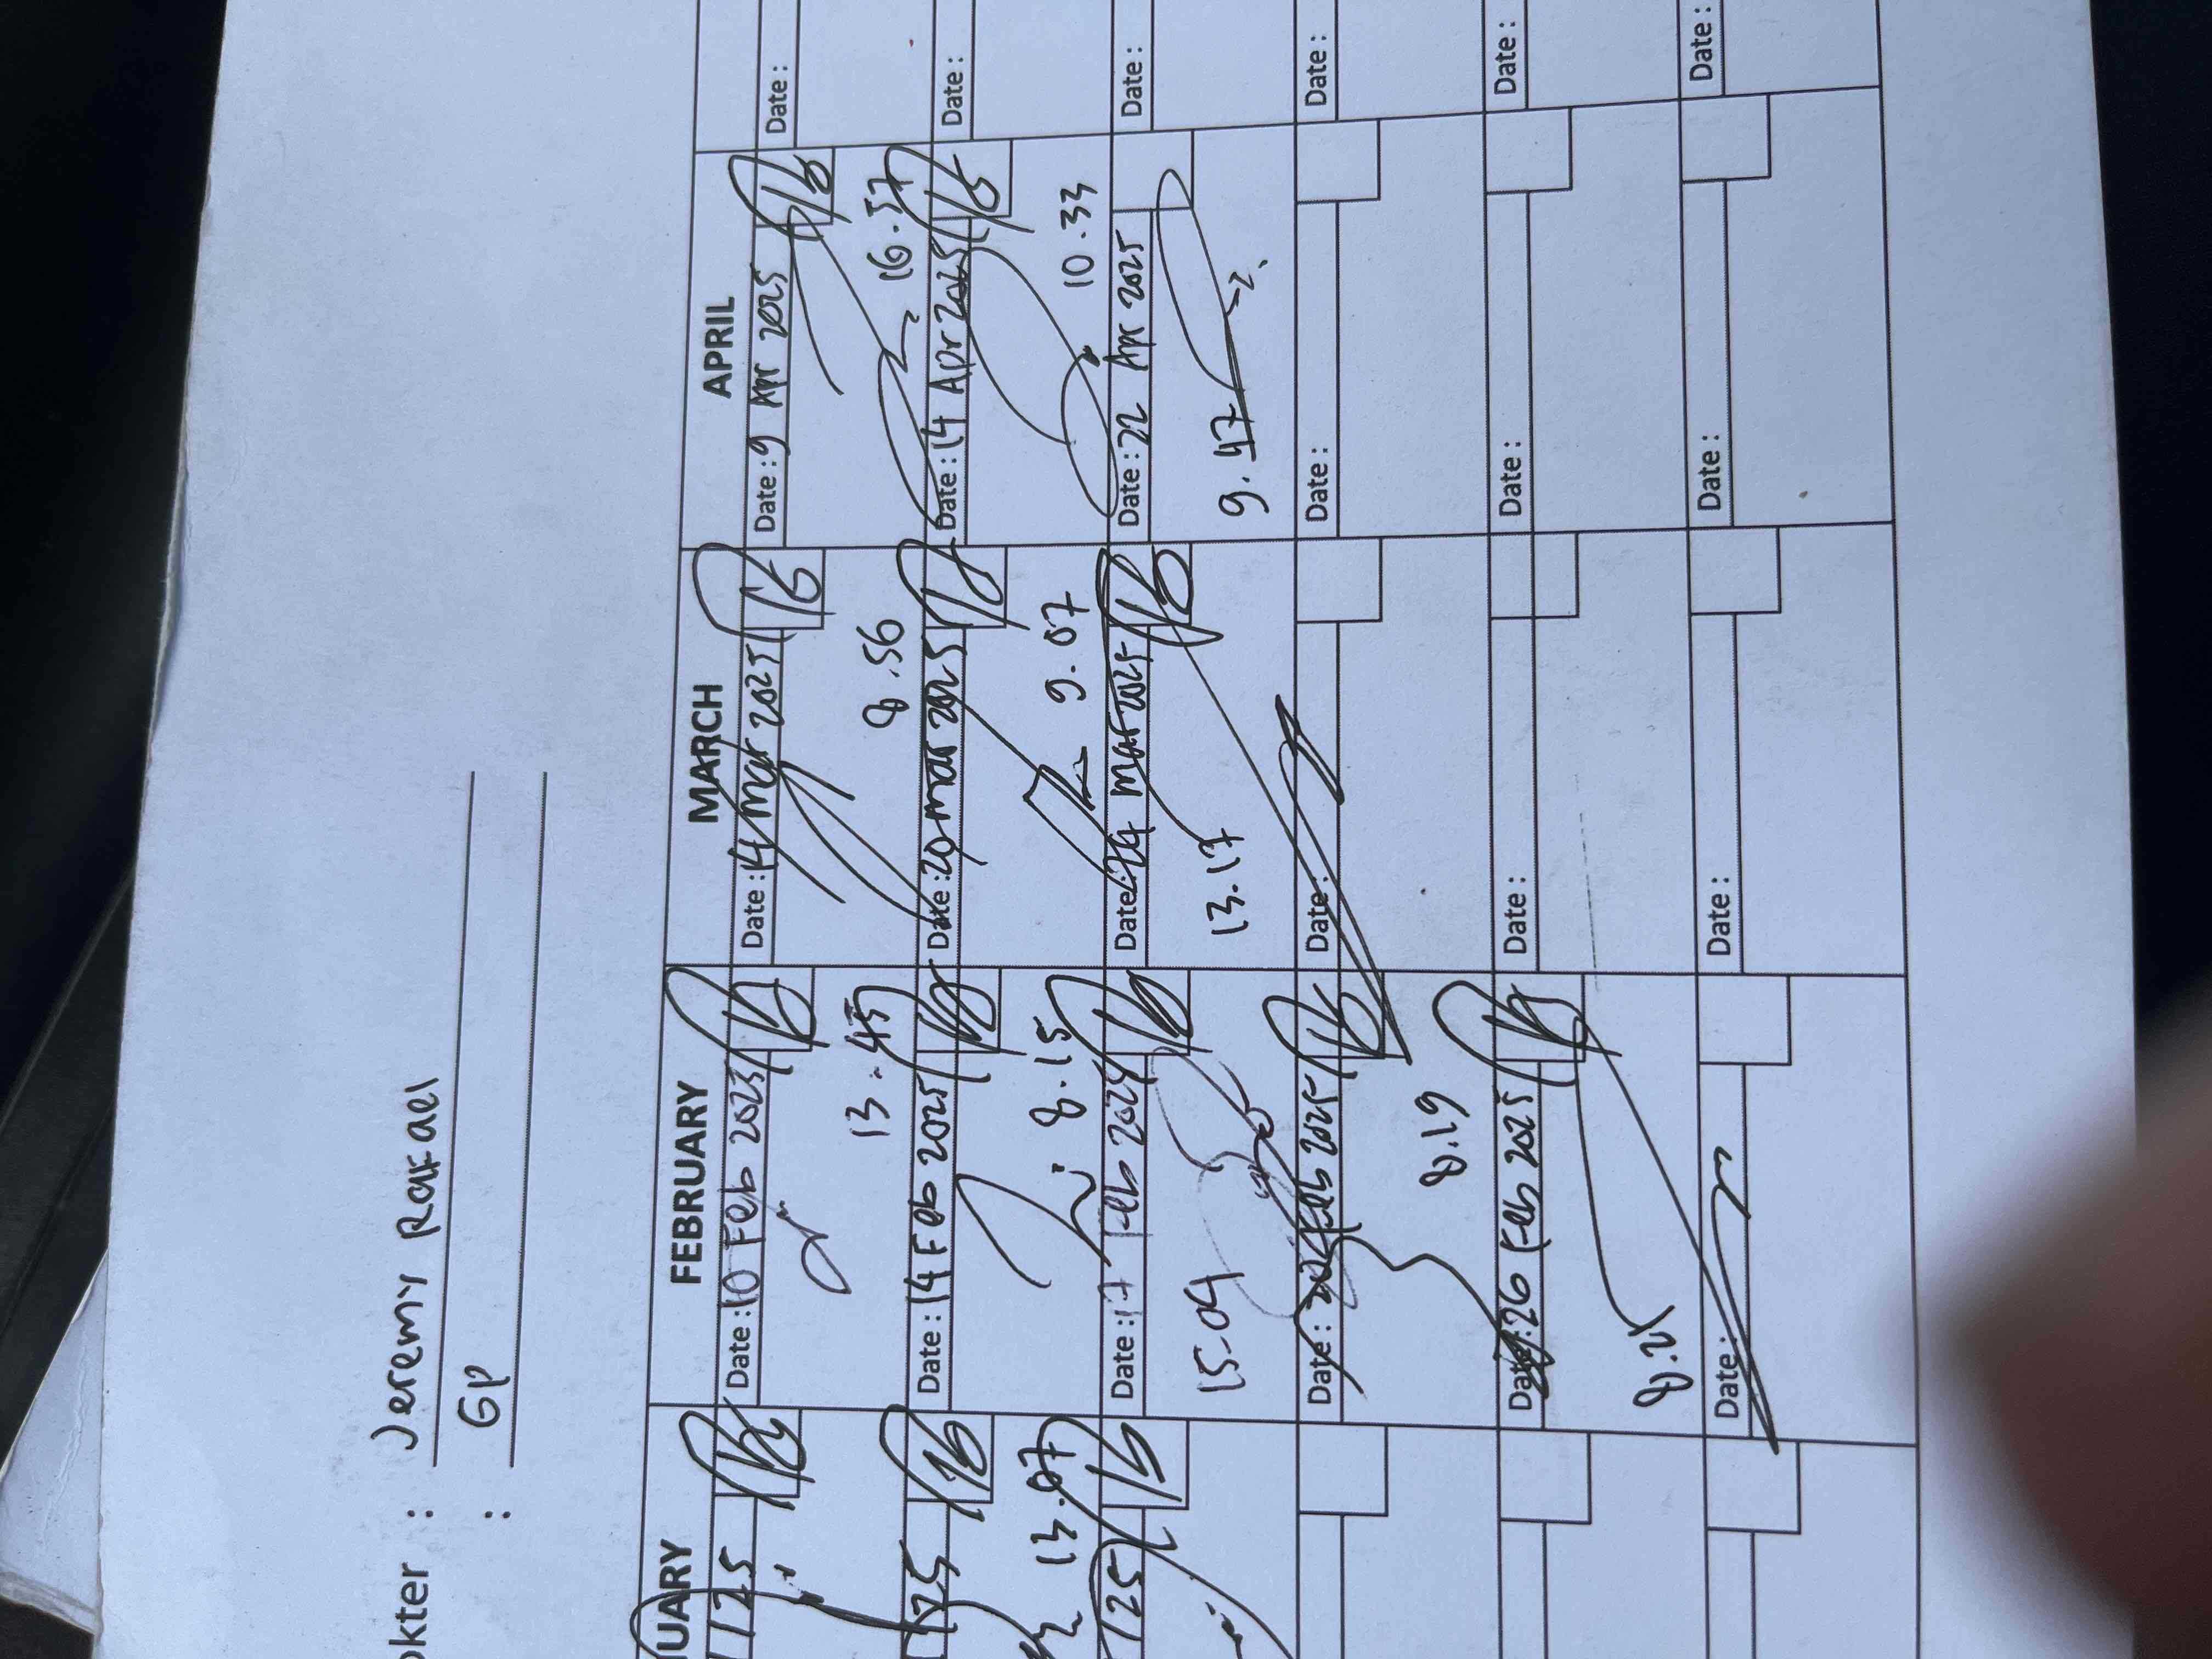 okter : Jeremy Rafael
: GP
UARY FEBRUARY MARCH APRIL
25 Date : 10 Feb 2025 Date : 14 Mar 2025 Date : 9 Apr 2025 Date :
13.45 8.56 16.57
25 Date : 14 Feb 2025 Date : 20 mar 2025 Date : 14 Apr 2025 Date :
13.07 8.15 9.07 10.33
25 Date : 17 Feb 2025 Date : 24 mar 2025 Date : 22 Apr 2025 Date :
15.04 13.17 9.47
Date : Feb 2025 Date : Date : Date :
8.19
Date : 26 Feb 2025 Date : Date : Date :
8.21
Date : Date : Date : Date :